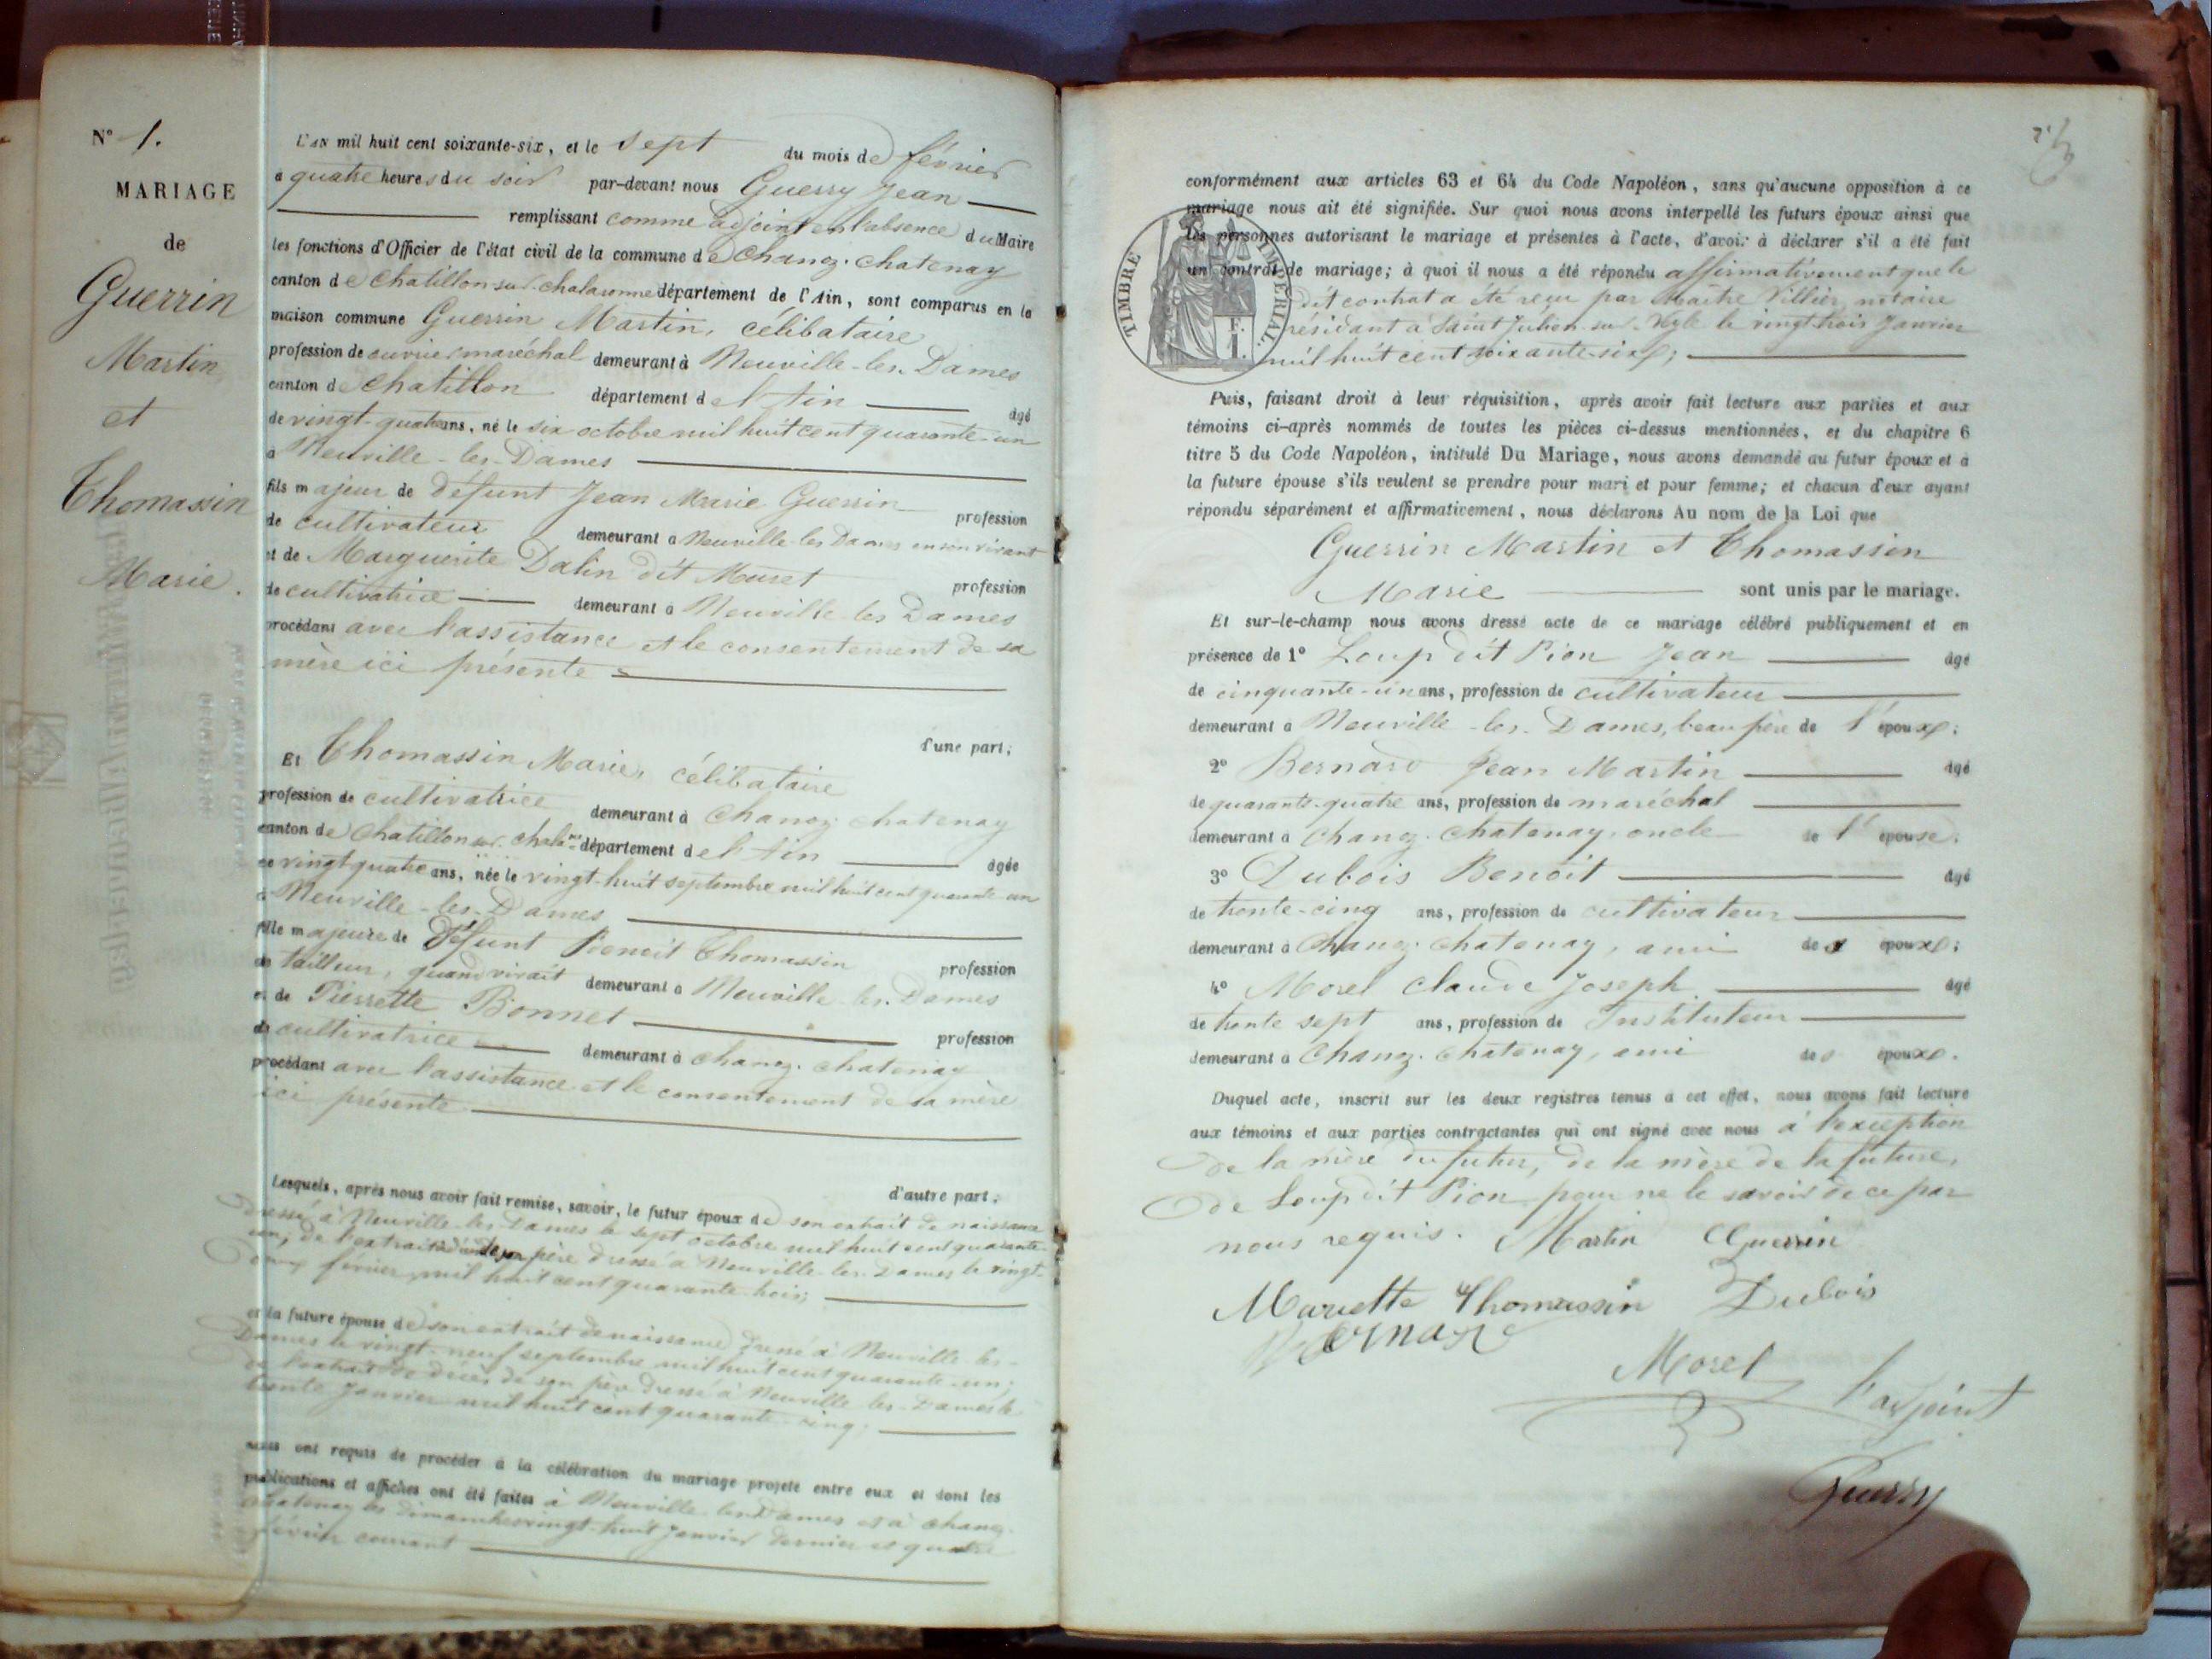 N° 1.
MARIAGE
de
Guerrin
Martin
et
Thomassin
Marie.
L'AN mil huit cent soixante-six, et le sept du mois de février
à quatre heures du soir par-devant nous Guerry Jean
remplissant comme adjoint en l'absence du Maire
les fonctions d'Officier de l'état civil de la commune de Chanoz-Chatenay
canton de Chatillon-sur-Chalaronne département de l'Ain, sont comparus en la
maison commune Guerrin Martin, célibataire
profession de ouvrier maréchal demeurant à Neuville-les-Dames
canton de Chatillon département de l'Ain âgé
de vingt-quatre ans, né le six octobre mil huit cent quarante-un
à Neuville-les-Dames
fils majeur de défunt Jean Marie Guerrin profession
de cultivateur demeurant à Neuville-les-Dames en son vivant
et de Marguerite Dalin dit Muret profession
de cultivatrice demeurant à Neuville les Dames
procédant avec l'assistance et le consentement de sa
mère ici présente
d'une part;
Et Thomassin Marie, célibataire
profession de cultivatrice demeurant à Chanoz-Chatenay
canton de Chatillon sur Chalne département de l'Ain âgée
de vingt quatre ans, née le vingt-huit septembre mil huit cent quarante-un
à Neuville-les-Dames
fille majeure de défunt Benoit Thomassin profession
de tailleur, quand vivait demeurant à Neuville-les-Dames
et de Pierrette Bonnet profession
de cultivatrice demeurant à Chanoz-Chatenay
procédant avec l'assistance et le consentement de sa mère
ici présente
d'autre part;
Lesquels, après nous avoir fait remise, savoir, le futur époux de son extrait de naissance
dressé à Neuville-les-Dames le sept octobre mil huit cent quarante-
un, de l'extrait de décès de son père dressé à Neuville-les-Dames le vingt-
février mil huit cent quarante trois;
et la future épouse de son extrait de naissance dressé à Neuville-les-
Dames le vingt-neuf septembre mil huit cent quarante-un;
de l'extrait de décès de son père dressé à Neuville-les-Dames le
trente Janvier mil huit cent quarante-cinq.
nous ont requis de procéder à la célébration du mariage projeté entre eux et dont les
publications et affiches ont été faites à Neuville-les-Dames et à Chanoz-
Chatenay les dimanches vingt-huit Janvier dernier et quatre
février courant
conformément aux articles 63 et 64 du Code Napoléon, sans qu'aucune opposition à ce
mariage nous ait été signifiée. Sur quoi nous avons interpellé les futurs époux ainsi que
les personnes autorisant le mariage et présentes à l'acte, d'avoir à déclarer s'il a été fait
un contrat de mariage; à quoi il nous a été répondu affirmativement que le
dit contrat a été reçu par Maître Villier, notaire
résidant à Saint Julien-sur-Veyle le vingt-trois Janvier
mil huit cent soixante-six;
TIMBRE IMPÉRIAL.
Puis, faisant droit à leur réquisition, après avoir fait lecture aux parties et aux
témoins ci-après nommés de toutes les pièces ci-dessus mentionnées, et du chapitre 6
titre 5 du Code Napoléon, intitulé Du Mariage, nous avons demandé au futur époux et à
la future épouse s'ils veulent se prendre pour mari et pour femme; et chacun d'eux ayant
répondu séparément et affirmativement, nous déclarons Au nom de la Loi que
Guerrin Martin et Thomassin
Marie sont unis par le mariage.
Et sur-le-champ nous avons dressé acte de ce mariage célébré publiquement et en
présence de 1° Loup dit Pion Jean âgé
de cinquante-un ans, profession de cultivateur
demeurant à Neuville-les-Dames, beau père de l'époux;
2° Bernard Jean Martin âgé
de quarante-quatre ans, profession de maréchal
demeurant à Chanoz-Chatenay, oncle de l'épouse.
3° Dubois Benoit âgé
de trente-cinq ans, profession de cultivateur
demeurant à Chanoz-Chatenay, ami des époux;
4° Morel Claude Joseph âgé
de trente sept ans, profession de Instituteur
demeurant à Chanoz-Chatenay, ami des époux.
Duquel acte, inscrit sur les deux registres tenus à cet effet, nous avons fait lecture
aux témoins et aux parties contractantes qui ont signé avec nous à l'exception
de la mère du futur, de la mère de la future,
de Loup dit Pion pour ne le savoir de ce par
nous requis. Martin Guerrin
Mariette Thomassin Dubois
Bernard
Morel l'adjoint
Guerry